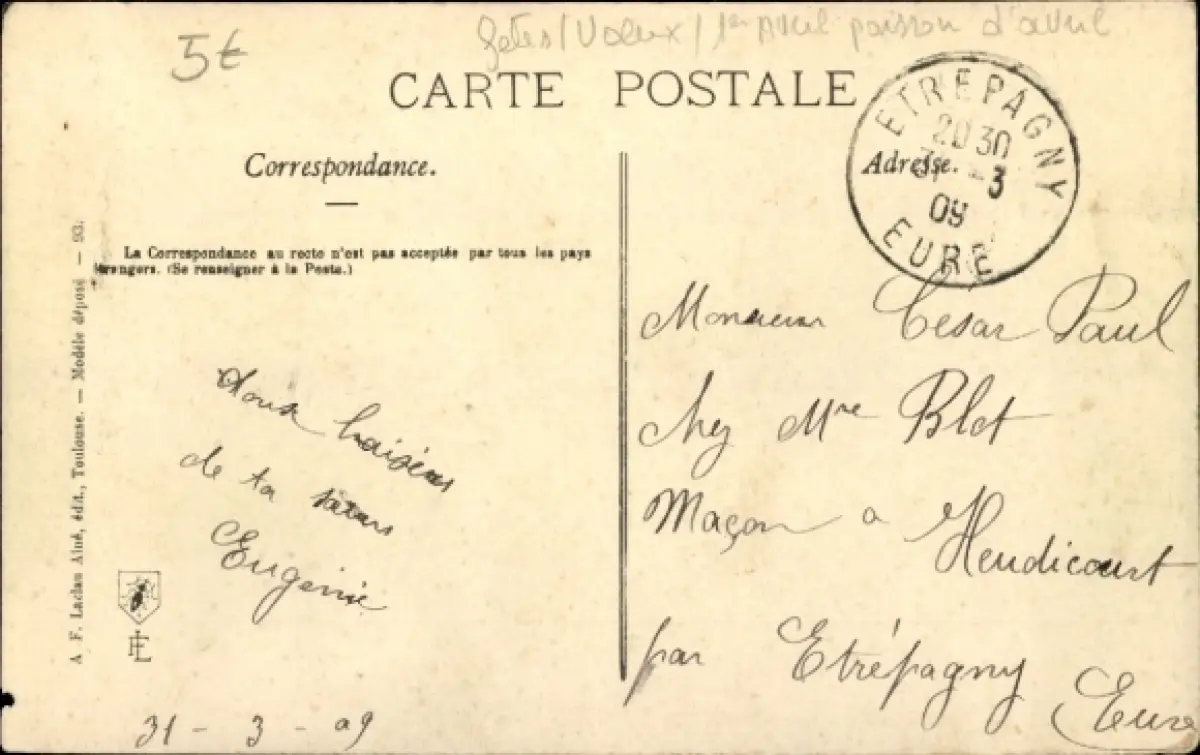 5€
fetes/Voeux/1er Avril poisson d'avril
CARTE POSTALE
ETREPAGNY
20 30
31 -3
09
EURE
Correspondance.
Adresse.
La Correspondance au recto n'est pas acceptée par tous les pays
étrangers. (Se renseigner à la Poste.)
A. F. Laclau Aîné, édit., Toulouse. — Modèle déposé — 93.
Doux baisers
de ta sœur
Eugénie
31 - 3 - 09
Monsieur César Paul
chez Mre Blot
Maçon a Heudicourt
par Etrépagny
Eure